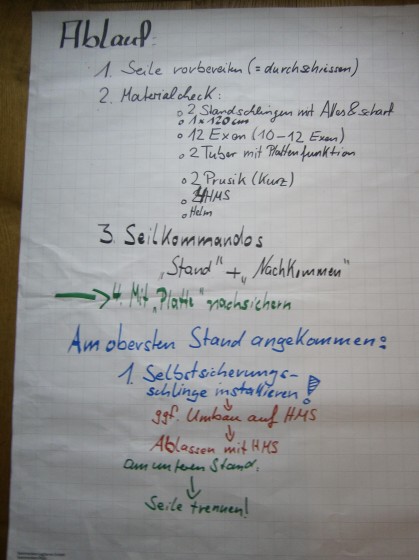 Ablauf:
1. Seile vorbereiten (= durchschiessen)
2. Materialcheck:
2 Standschlingen mit Alles & scharf
1 x 120 cm
12 Exen (10-12 Exen)
2 Tuber mit Plattenfunktion
2 Prusik (Kurz)
HMS
Helm
3. Seilkommandos
"Stand" + "Nachkommen"
→ 4. Mit "Platte" nachsichern
Am obersten Stand angekommen:
1. Selbstsicherungs-
schlinge installieren!
↓
ggf. Umbau auf HMS
↓
Ablassen mit HMS
am unteren Stand:
↓
Seile trennen!